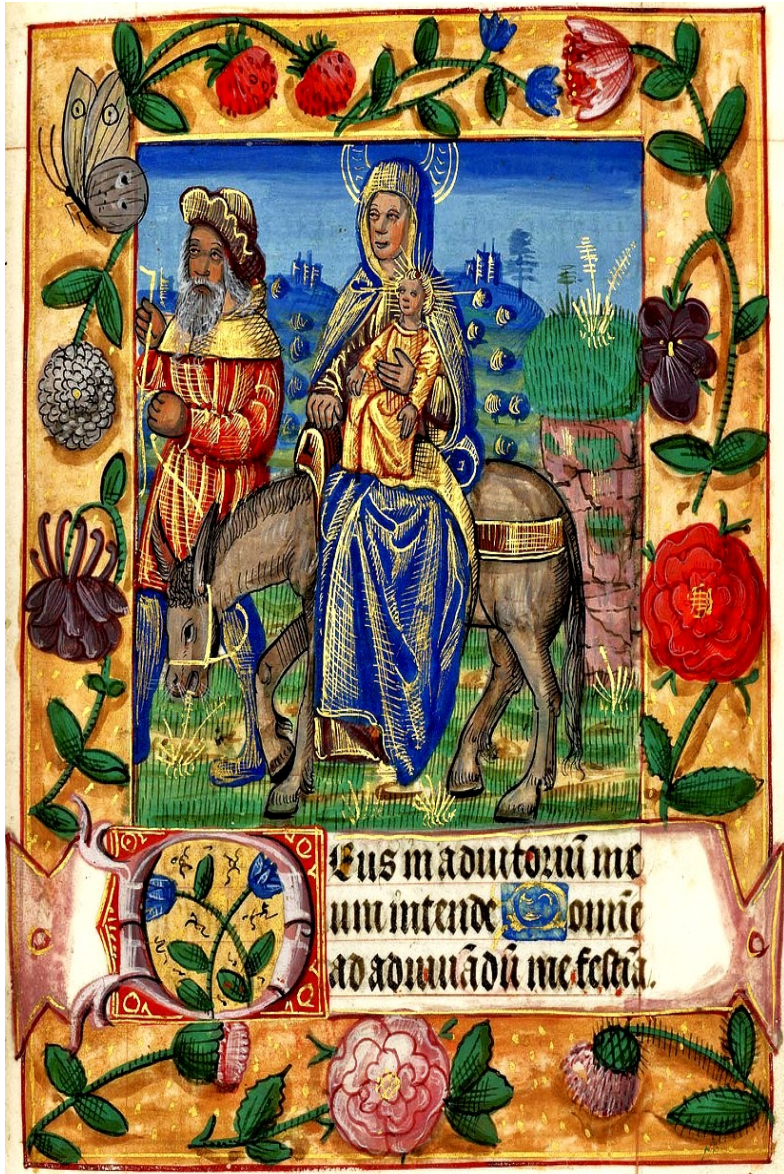 Deus in adiutoriū me
um intende Domīe
ad adiuuādū me festīa.